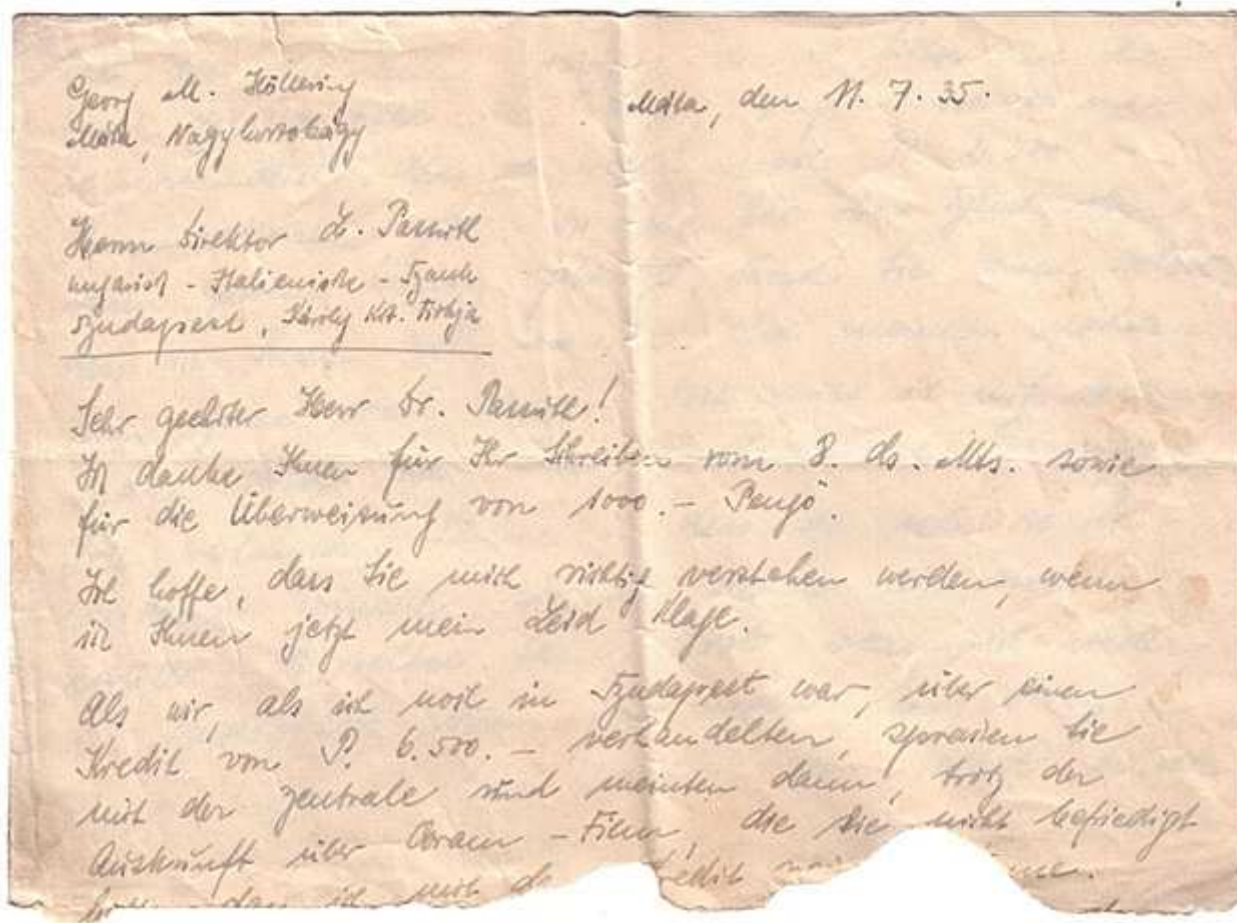 Georg M. Höllering
Máta, Nagyhortobágy
Máta, den 11. 7. 35.
Herrn Direktor D. Passuth
ungarisch - Italienische - Bank
Budapest, Károly Kir.
Sehr geehrter Herr Dr. Passuth!
Ich danke Ihnen für Ihr Schreiben vom 8. ds. Mts. sowie
für die Überweisung von 1000.- Pengö.
Ich hoffe, dass Sie mich richtig verstehen werden, wenn
ich Ihnen jetzt mein Leid klage.
Als wir, als ich noch in Budapest war, über einen
Kredit von P. 6.500.- verhandelten, sprachen Sie
mit der Zentrale und meinten dann, trotz der
Auskunft über -Film, die Sie nicht befriedigt
dass ich mit